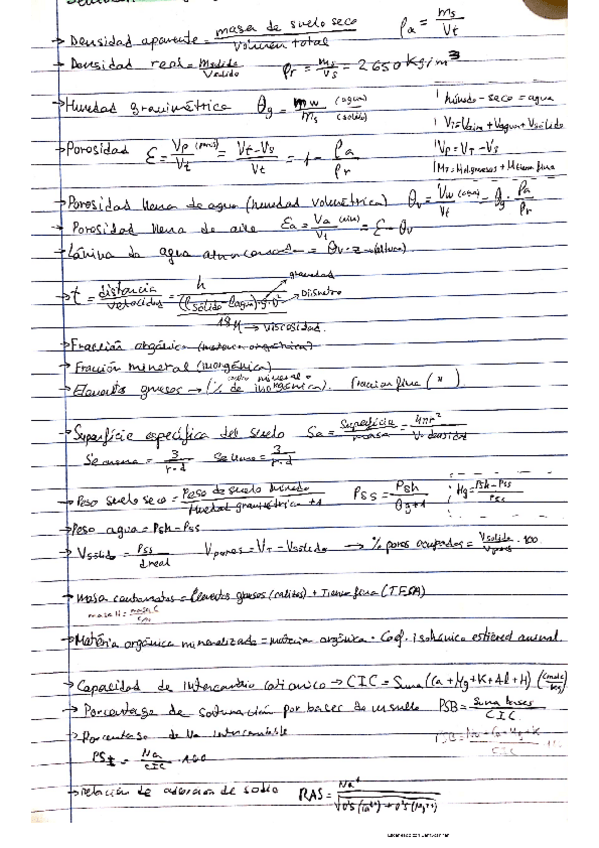 → Densidad aparente = masa de suelo seco / volumen total   ρa = ms / Vt
→ Densidad real = / ρr = ms / vs = 2650 kg/m³
→ Humedad gravimétrica θg = mw (agua) / ms (solido)   húmedo - seco = agua
VT = Vaire + Vagua + Vsólido
→ Porosidad ε = Vp (poros) / Vt = Vt - Vs / Vt = 1 - ρa / ρr   Vp = VT - Vs
→ Porosidad llena de agua (humedad volumétrica) θv = Vw (agua) / Vt = θg · ρa / ρr
→ Porosidad llena de aire εa = Va (aire) / Vt = ε - θv
→ Lámina de agua = θv · z (altura)
→ t = distancia / velocidad = h / (ρsolido - ρagua) · g · / 18 μ → viscosidad
gravedad
→ Fracción orgánica (materia orgánica)
→ Fracción mineral (inorgánica)
→ Elementos gruesos → (% de inorgánica). Fraccion fina ( )
→ Superfície específica del suelo Sa = Superficie / masa = 4πr² / V · densidad
= 3 / r·d   = 3 / r·d
→ Peso suelo seco = Peso de suelo húmedo / Humedad gravimétrica + 1   Pss = Psh / θg + 1   Hg = Psh - Pss / Pss
→ Peso agua = Psh - Pss
→ Vsolido = Pss / dreal   Vporos = VT - Vsolido → % poros ocupados = Vsolido / Vporos · 100
→ masa carbonatos = Elementos gruesos (calizos) + Tierra fina (TFSA)
→ Matéria orgánica mineralizada = matéria orgánica · Coef. isohúmico estiércol anual.
→ Capacidad de intercambio cationico → CIC = Suma (Ca + Mg + K + Al + H) (cmolc / kg)
→ Porcentage de saturación por bases de un suelo PSB = Suma bases / CIC
→ Porcentage de Na intercambiable   PSB = Na + Ca + Mg + K / CIC
= Na / CIC · 100
→ relación de adsorción de sodio RAS = Na⁺ / √0'5 (Ca²⁺) + 0'5 (Mg²⁺)